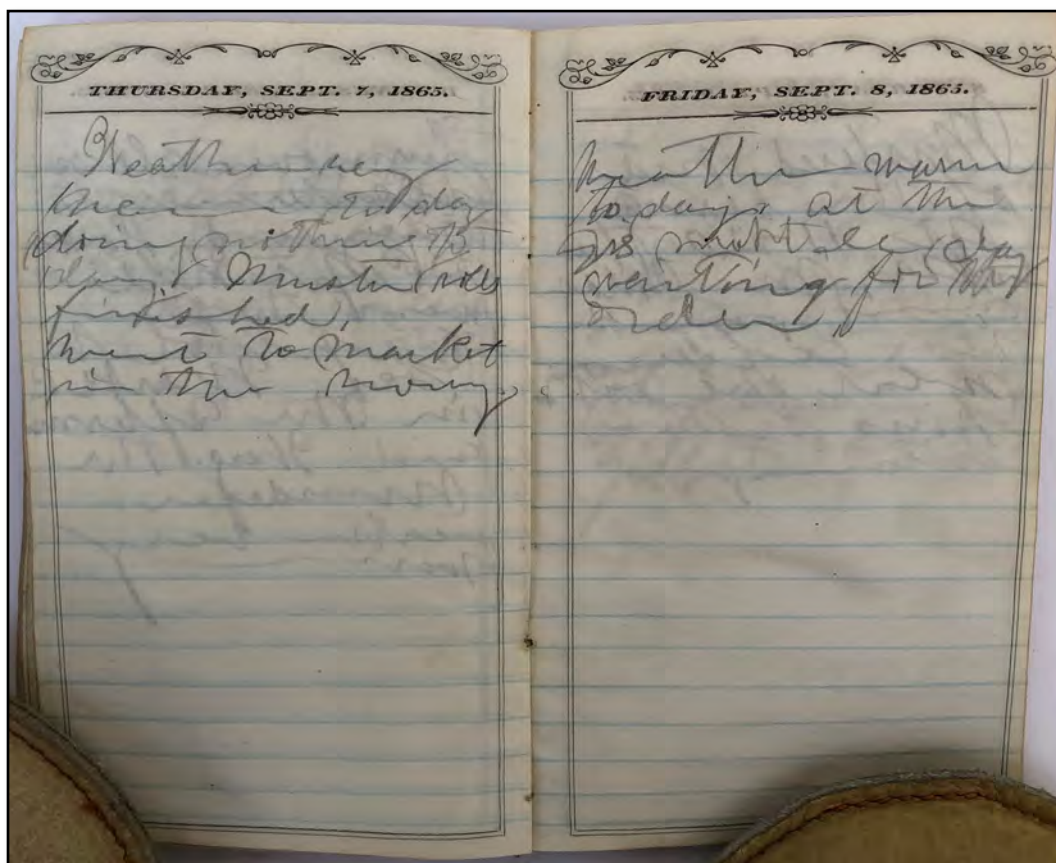 THURSDAY, SEPT. 7, 1865.
Weather very
warm to day
doing nothing to
day. Muster rolls
finished,
went to market
in the morng.
FRIDAY, SEPT. 8, 1865.
Weather warm
to day, at the
all day
waiting for the
order,